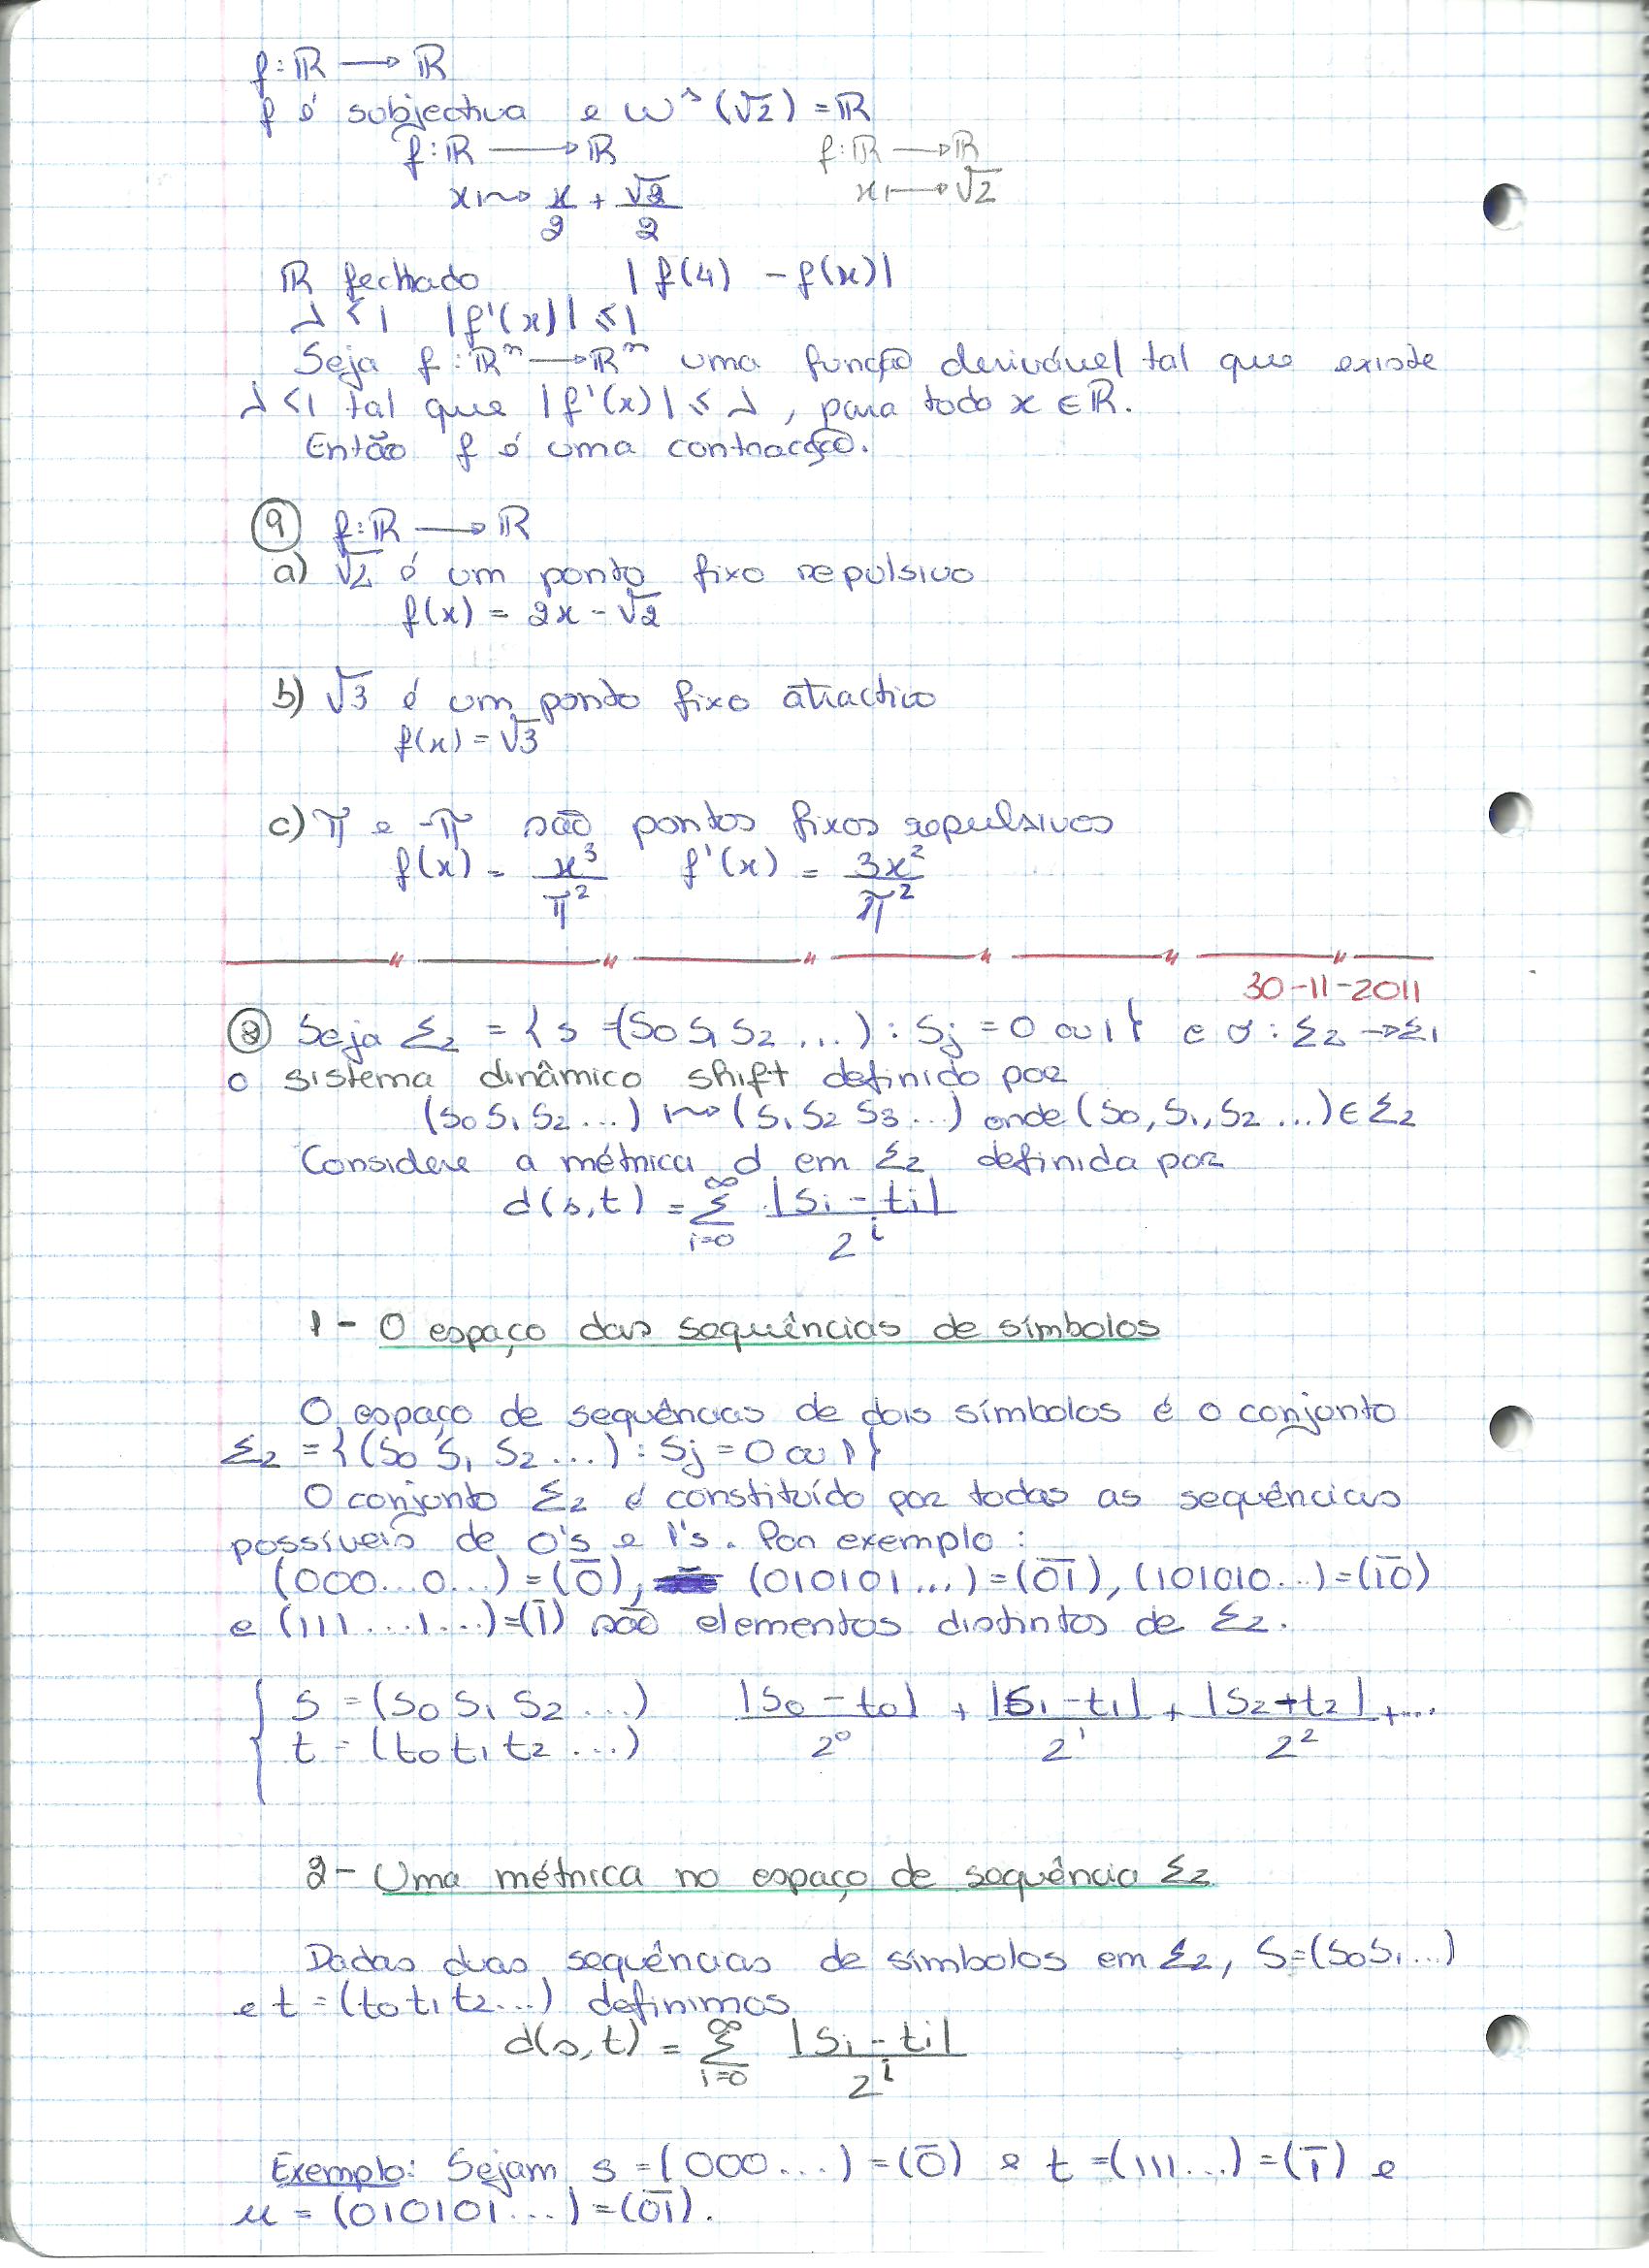 f: ℝ → ℝ
f é subjectiva e Wˢ(√2) = ℝ
f: ℝ → ℝ f: ℝ → ℝ
x ↦ x/2 + √2/2 x ↦ √2
ℝ fechado |f(4) - f(x)|
λ < 1 |f'(x)| ≤ 1
Seja f: ℝⁿ → ℝⁿ uma função derivável tal que existe
λ < 1 tal que |f'(x)| ≤ λ, para todo x ∈ ℝ.
Então f é uma contracção.
⑨ f: ℝ → ℝ
a) √2 é um ponto fixo repulsivo
f(x) = 2x - √2
b) √3 é um ponto fixo atractivo
f(x) = √3
c) π e -π são pontos fixos repulsivos
f(x) = x³/π² f'(x) = 3x²/π²
30-11-2011
⑧ Seja Σ₂ = {s = (s₀ s₁ s₂ ...) : sⱼ = 0 ou 1} e σ: Σ₂ → Σ₁
o sistema dinâmico shift definido por
(s₀ s₁ s₂ ...) ↦ (s₁ s₂ s₃ ...) onde (s₀, s₁, s₂ ...) ∈ Σ₂
Considere a métrica d em Σ₂ definida por
d(s,t) = ∑_{i=0}^{∞} |sᵢ - tᵢ| / 2ⁱ
1 - O espaço das sequências de símbolos
O espaço de sequências de dois símbolos é o conjunto
Σ₂ = {(s₀ s₁ s₂ ...) : sⱼ = 0 ou 1}
O conjunto Σ₂ é constituído por todas as sequências
possíveis de 0's e 1's. Por exemplo :
(000...0...) = (0̅), (010101...) = (0̅1̅), (101010...) = (1̅0̅)
e (111...1...) = (1̅) são elementos distintos de Σ₂.
s = (s₀ s₁ s₂ ...) |s₀ - t₀|/2⁰ + |s₁ - t₁|/2¹ + |s₂ + t₂|/2² + ...
t = (t₀ t₁ t₂ ...)
2 - Uma métrica no espaço de sequência Σ₂
Dadas duas sequências de símbolos em Σ₂, s = (s₀ s₁ ...)
e t = (t₀ t₁ t₂ ...) definimos
d(s,t) = ∑_{i=0}^{∞} |sᵢ - tᵢ| / 2ⁱ
Exemplo: Sejam s = (000...) = (0̅) e t = (111...) = (1̅) e
u = (010101...) = (0̅1̅).